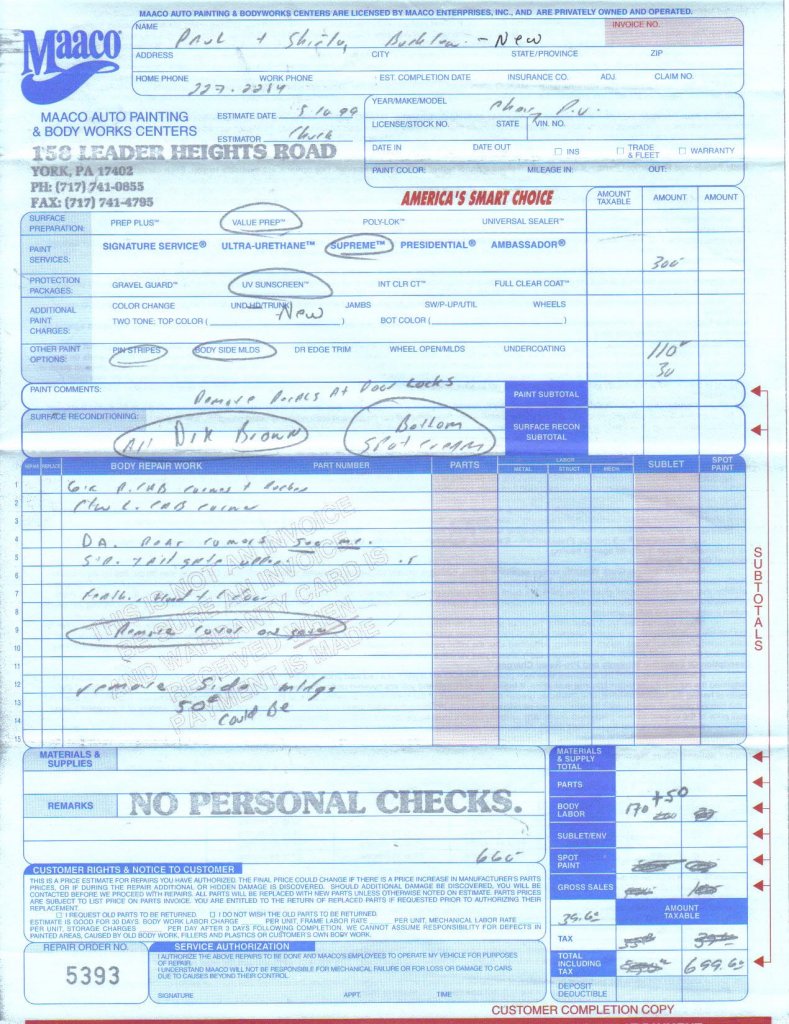 MAACO AUTO PAINTING & BODYWORKS CENTERS ARE LICENSED BY MAACO ENTERPRISES, INC., AND ARE PRIVATELY OWNED AND OPERATED.
Maaco
NAME Paul + Shirley - New INVOICE NO.
ADDRESS CITY STATE/PROVINCE ZIP
HOME PHONE WORK PHONE EST. COMPLETION DATE INSURANCE CO. ADJ. CLAIM NO.
227-2284
MAACO AUTO PAINTING
& BODY WORKS CENTERS
ESTIMATE DATE 99
ESTIMATOR Chuck
158 LEADER HEIGHTS ROAD
YORK, PA 17402
PH: (717) 741-0855
FAX: (717) 741-4795
YEAR/MAKE/MODEL
LICENSE/STOCK NO. STATE VIN. NO.
DATE IN DATE OUT INS TRADE & FLEET WARRANTY
PAINT COLOR: MILEAGE IN: OUT:
AMERICA'S SMART CHOICE
AMOUNT TAXABLE AMOUNT AMOUNT
SURFACE PREPARATION: PREP PLUS™ VALUE PREP™ POLY-LOK™ UNIVERSAL SEALER™
PAINT SERVICES: SIGNATURE SERVICE® ULTRA-URETHANE™ SUPREME™ PRESIDENTIAL® AMBASSADOR®
300
PROTECTION PACKAGES: GRAVEL GUARD™ UV SUNSCREEN™ INT CLR CT™ FULL CLEAR COAT™
ADDITIONAL PAINT CHARGES: COLOR CHANGE UND HD/TRUNK JAMBS SW/P-UP/UTIL WHEELS
New
TWO TONE: TOP COLOR ( ) BOT COLOR ( )
OTHER PAINT OPTIONS: PIN STRIPES BODY SIDE MLDS DR EDGE TRIM WHEEL OPEN/MLDS UNDERCOATING
110
30
PAINT COMMENTS: Remove Decals At Door Locks PAINT SUBTOTAL
SURFACE RECONDITIONING: All Drk Brown Bottom SURFACE RECON SUBTOTAL
REPAIR REPLACE BODY REPAIR WORK PART NUMBER PARTS LABOR METAL STRUCT MECH. SUBLET SPOT PAINT
1
2
3
4 DA. Rear
5 .5
6
7
8
9 Remove cover on
10
11
12 remove side mldgs
13 50
14 could be
15
THIS IS NOT AN INVOICE
SECURE AN INVOICE
AND WARRANTY CARD IS
RECEIVED WHEN
PAYMENT IS MADE
SUBTOTALS
MATERIALS & SUPPLIES
REMARKS NO PERSONAL CHECKS.
660
MATERIALS & SUPPLY TOTAL
PARTS
BODY LABOR 170 +50
SUBLET/ENV
SPOT PAINT
GROSS SALES
39.60 AMOUNT TAXABLE
TAX
TOTAL INCLUDING TAX 699.60
DEPOSIT DEDUCTIBLE
CUSTOMER RIGHTS & NOTICE TO CUSTOMER
THIS IS A PRICE ESTIMATE FOR REPAIRS YOU HAVE AUTHORIZED. THE FINAL PRICE COULD CHANGE IF THERE IS A PRICE INCREASE IN MANUFACTURER'S PARTS
PRICES, OR IF DURING THE REPAIR ADDITIONAL OR HIDDEN DAMAGE IS DISCOVERED. SHOULD ADDITIONAL DAMAGE BE DISCOVERED, YOU WILL BE
CONTACTED BEFORE WE PROCEED WITH REPAIRS. ALL PARTS WILL BE REPLACED WITH NEW PARTS UNLESS OTHERWISE NOTED ON ESTIMATE. PARTS PRICES
ARE SUBJECT TO LIST PRICE ON PARTS INVOICE. YOU ARE ENTITLED TO THE RETURN OF REPLACED PARTS IF REQUESTED PRIOR TO AUTHORIZING THEIR
REPLACEMENT.
I REQUEST OLD PARTS TO BE RETURNED. I DO NOT WISH THE OLD PARTS TO BE RETURNED.
ESTIMATE IS GOOD FOR 30 DAYS. BODY WORK LABOR CHARGE PER UNIT, FRAME LABOR RATE PER UNIT, MECHANICAL LABOR RATE
PER UNIT, STORAGE CHARGES PER DAY AFTER 3 DAYS FOLLOWING COMPLETION. WE CANNOT ASSUME RESPONSIBILITY FOR DEFECTS IN
PAINTED AREAS, CAUSED BY OLD BODY WORK, FILLERS AND PLASTICS OR CUSTOMER'S OWN BODY WORK.
REPAIR ORDER NO.
5393
SERVICE AUTHORIZATION
I AUTHORIZE THE ABOVE REPAIRS TO BE DONE AND MAACO'S EMPLOYEES TO OPERATE MY VEHICLE FOR PURPOSES
OF REPAIR.
I UNDERSTAND MAACO WILL NOT BE RESPONSIBLE FOR MECHANICAL FAILURE OR FOR LOSS OR DAMAGE TO CARS
DUE TO CAUSES BEYOND THEIR CONTROL.
SIGNATURE APPT. TIME
CUSTOMER COMPLETION COPY